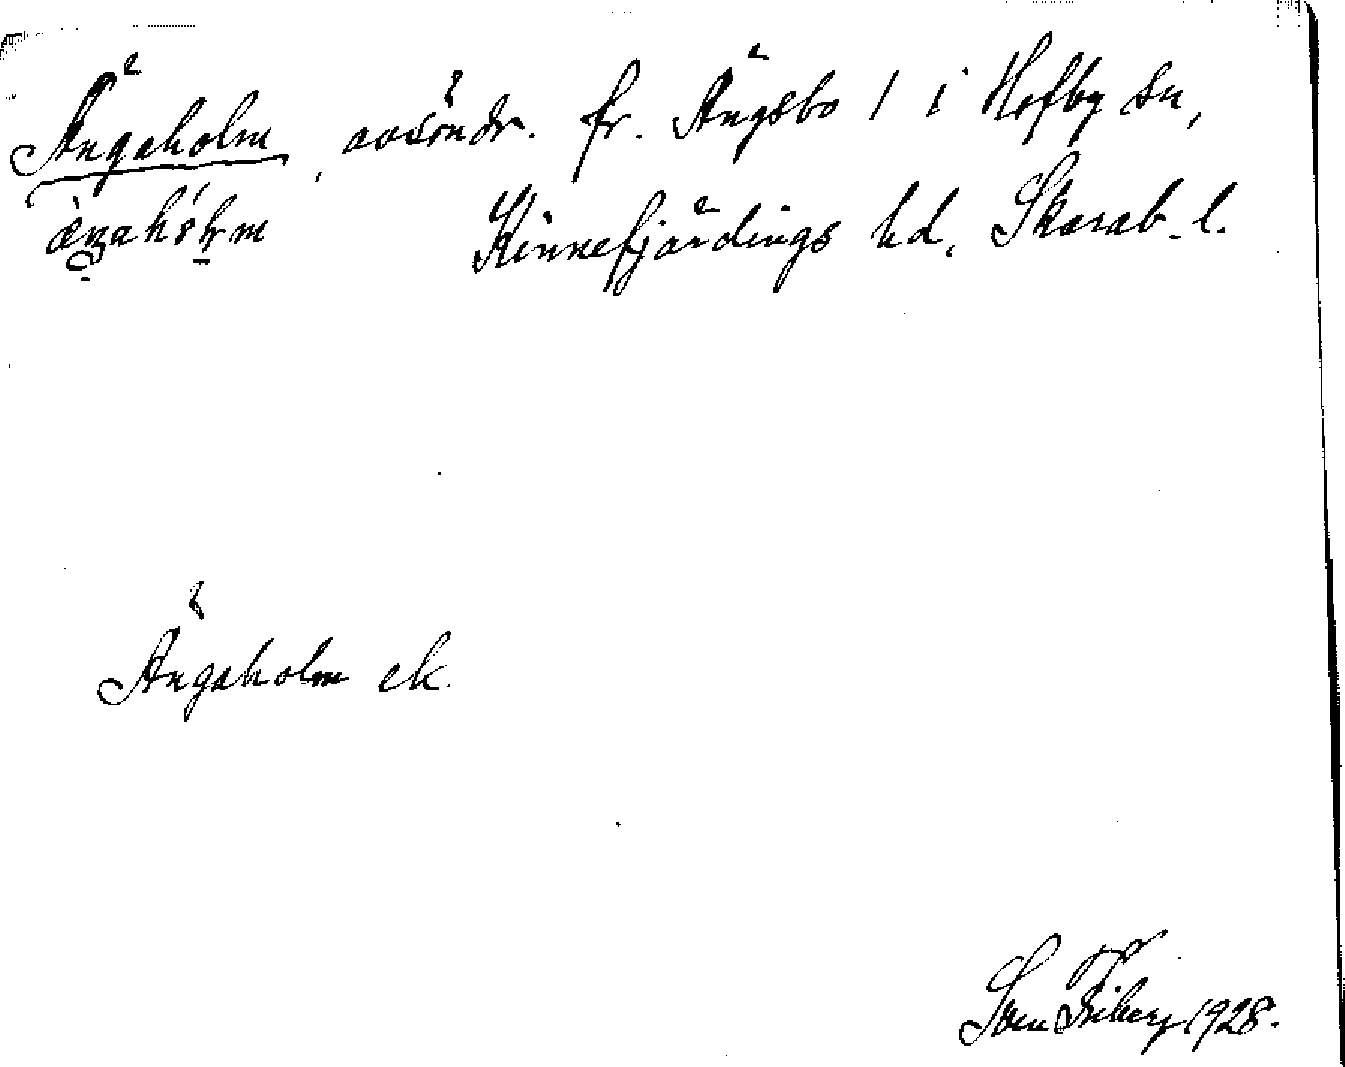 Ängaholm, avsöndr. fr. Ängsbo 1 i Hofby sn,
Kinnefjärdings hd, Skarab. l.
Ängaholm ek.
Sven Friberg 1928.